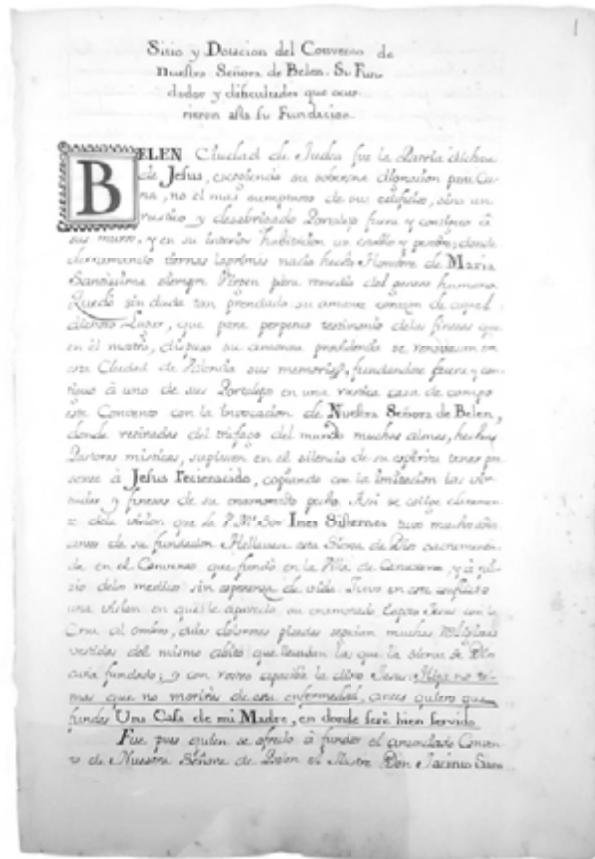 1
Sitio y Dotacion del Convento de
Nuestra Señora de Belen. Su Fun
dador y dificultades que ocur
rieron asta su Fundacion
BELEN Ciudad de Judea fue la Patria dichosa
de Jesus, escogiendo su soberana dignacion para Cu
na, no el mas sumptuoso de sus edificios, sino un
rustico y desabrigado Portalejo fuera y contiguo à
sus muros, y en su interior habitacion un establo y pesebre, donde
derramando tiernas lagrimas nacio hecho Hombre de Maria
Santissima siempre Virgen para remedio del genero humano.
Quedó sin duda tan prendado su amante corazon de aquel
dichoso Lugar, que para perpetuo testimonio de las finezas que
en èl mostró, dispuso su amorosa providencia se renovassen en
esta Ciudad de Valencia sus memorias, fundandose fuera y con
tiguo à uno de sus Portalejos en una rustica casa de campo
este Convento con la Invocacion de Nuestra Señora de Belen,
donde retiradas del trafago del mundo muchas almas, hechas
Pastoras misticas, supliesen en el silencio de su espiritu tener pre
sente à Jesus recien nacido, copiando con la imitacion las vir
tudes y finezas de su enamorado pecho. Asi se colige claramen
te de la vision que la V. Me. Sor Ines Sisternes tuvo muchos años
antes de su fundacion. Hallavase esta Sierva de Dios sacramenta
da en el Convento que fundó en la Villa de Carcaxente, y à jui
cio de los medicos sin esperanza de vida. Tuvo en este conflicto
una vision en que le aparecio su enamorado Esposo Jesus con la
Cruz al ombro, cuias dolorosas pisadas seguian muchas Religiosas
vestidas del mismo abito que llevaban las que la sierva de Dios
avia fundado; y con rostro apacible la dixo Jesus: Hija no te
mas que no moriras de esta enfermedad, antes quiero que
fundes Una Casa de mi Madre, en donde seré bien servido.
Fue pues quien se ofrecio à fundar el anunciado Conven
to de Nuestra Señora de Belen el Ilustre Don Jacinto Sans